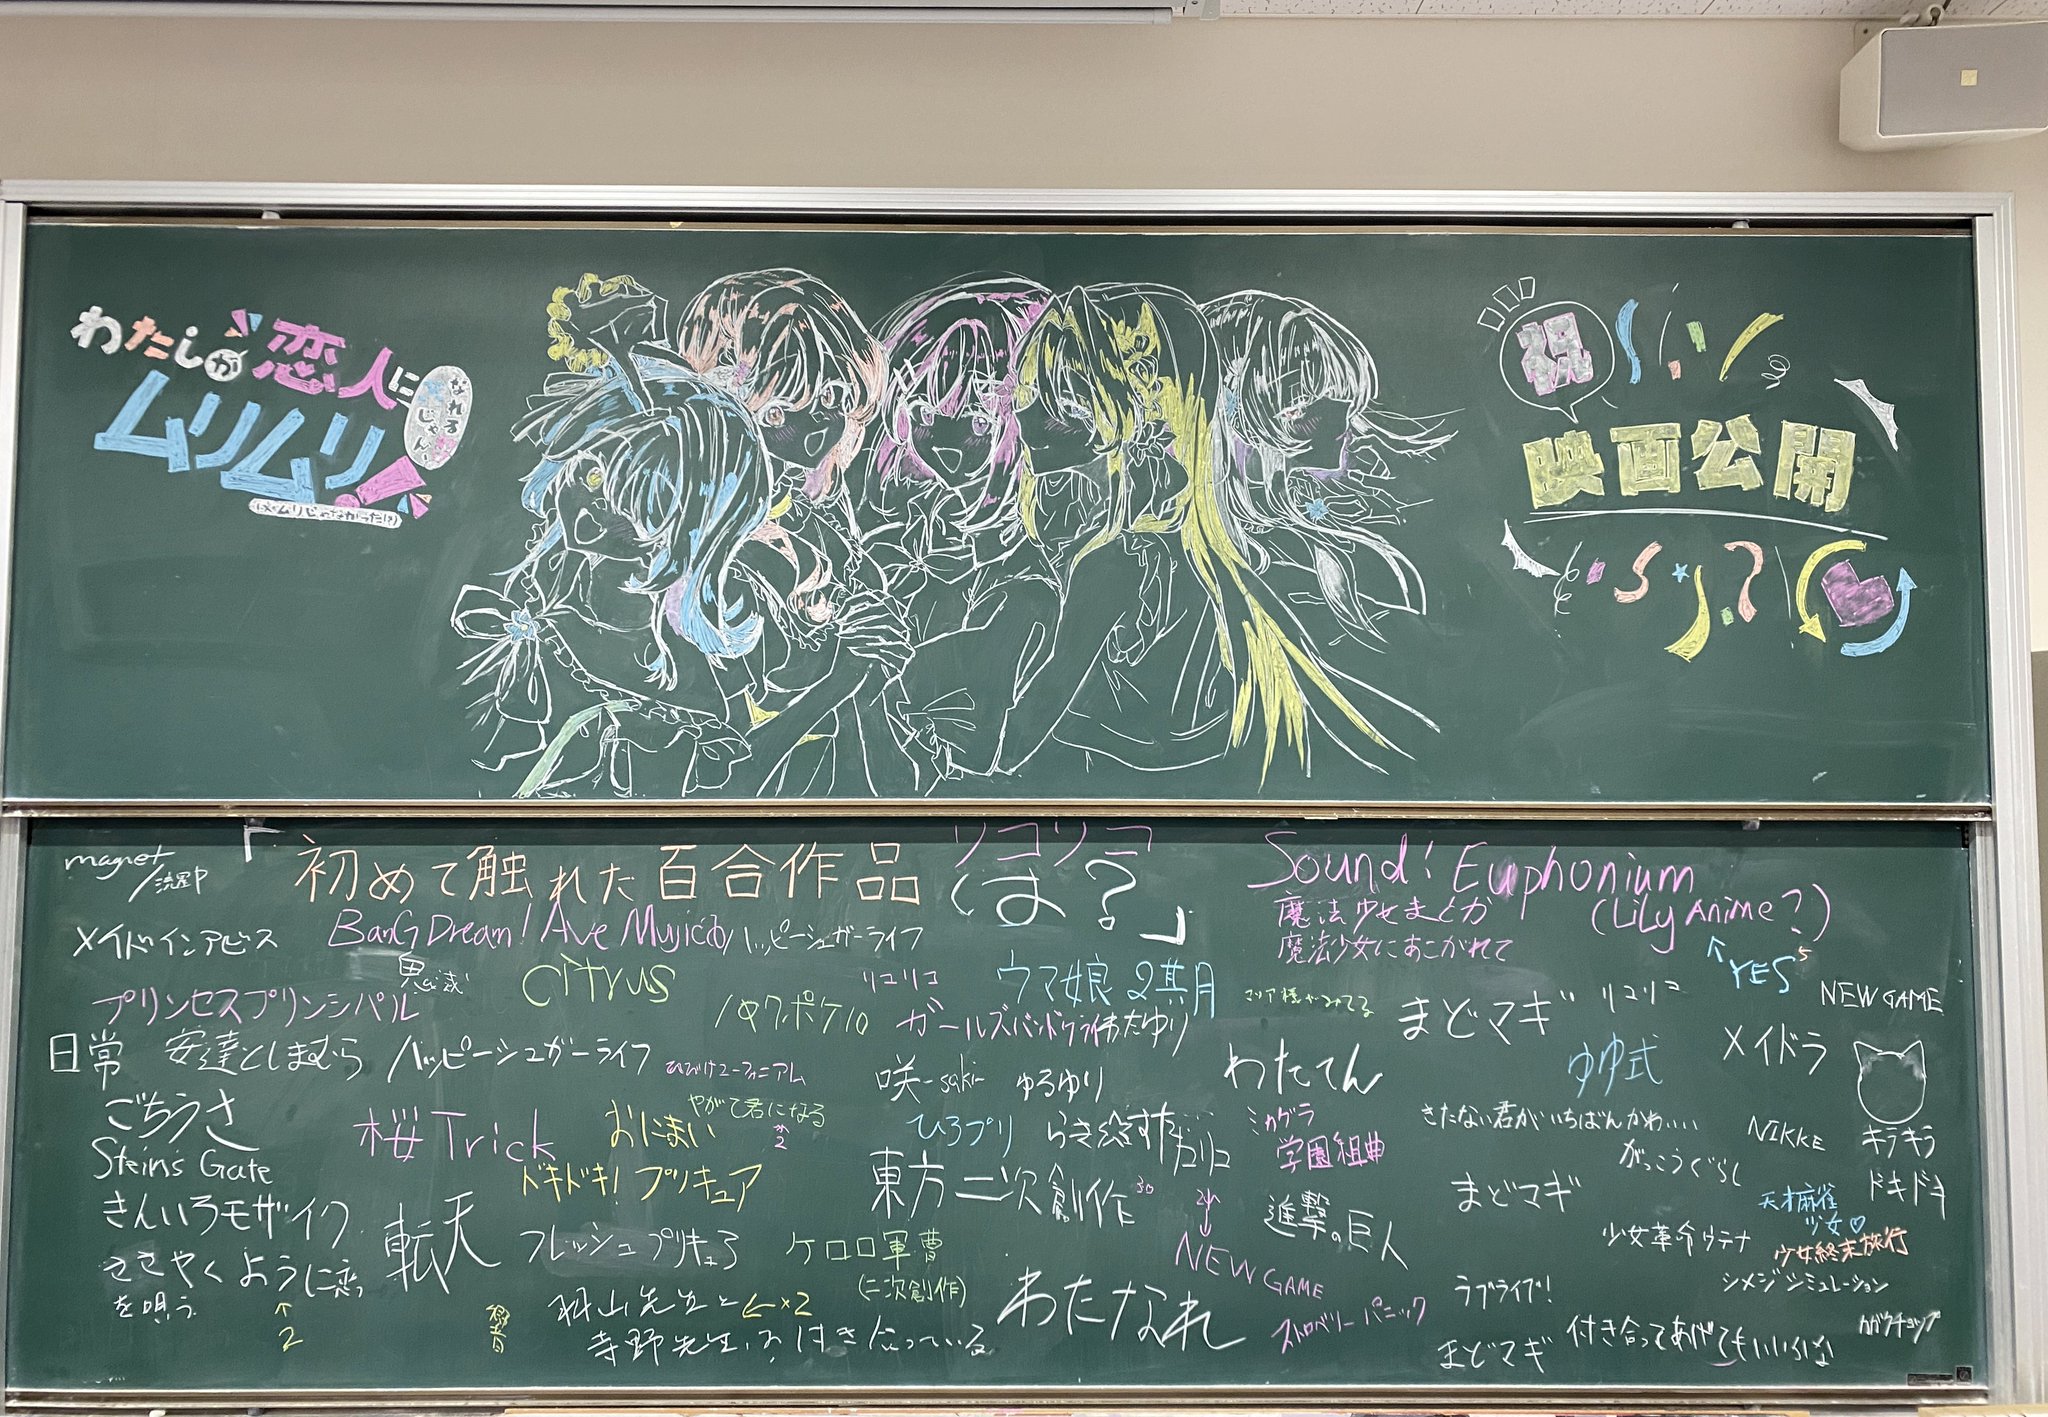 わたしが恋人に
なれるじゃん、
ムリムリ!
(※ムリじゃなかった!?)
祝
映画公開
「初めて触れた百合作品は?」
リコリコ
magnet
メイドインアビス
BanG Dream! Ave Mujica
ハッピーシュガーライフ
Sound! Euphonium
(Lily Anime?)
↑YES
魔法少女まどか
魔法少女にあこがれて
プリンセスプリンシパル
citrus
リコリコ
ウマ娘2期
マリア様がみてる
まどマギ
リコリコ
NEW GAME
日常
安達としまむら
ハッピーシュガーライフ
ひびけユーフォニアム
ガールズバンドクライ
ゆゆ式
メイドラ
咲-saki-
ゆるゆり
わたてん
ごちうさ
桜Trick
おにまい
やがて君になる
ひろプリ
ミカグラ
学園組曲
きたない君がいちばんかわいい
NIKKE
キラキラ
ドキドキ
Steins Gate
ドキドキ!プリキュア
東方二次創作
がっこうぐらし
まどマギ
天才麻雀
少女♡
きんいろモザイク
転天
フレッシュプリキュア
ケロロ軍曹
(二次創作)
NEW GAME
進撃の巨人
少女革命ウテナ
少女終末旅行
シメジシミュレーション
ささやくように恋
を唄う
↑
2
羽山先生と ←×2
寺野先生が付き合っている
わたなれ
ストロベリーパニック
ラブライブ!
まどマギ
付き合ってあげてもいいかな
カガクチョップ